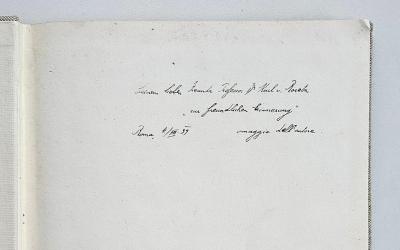 Seinem lieben Freunde Professor Dr Karl v.
„zur freundlichen Erinnerung"
Roma, omaggio dell'autore.